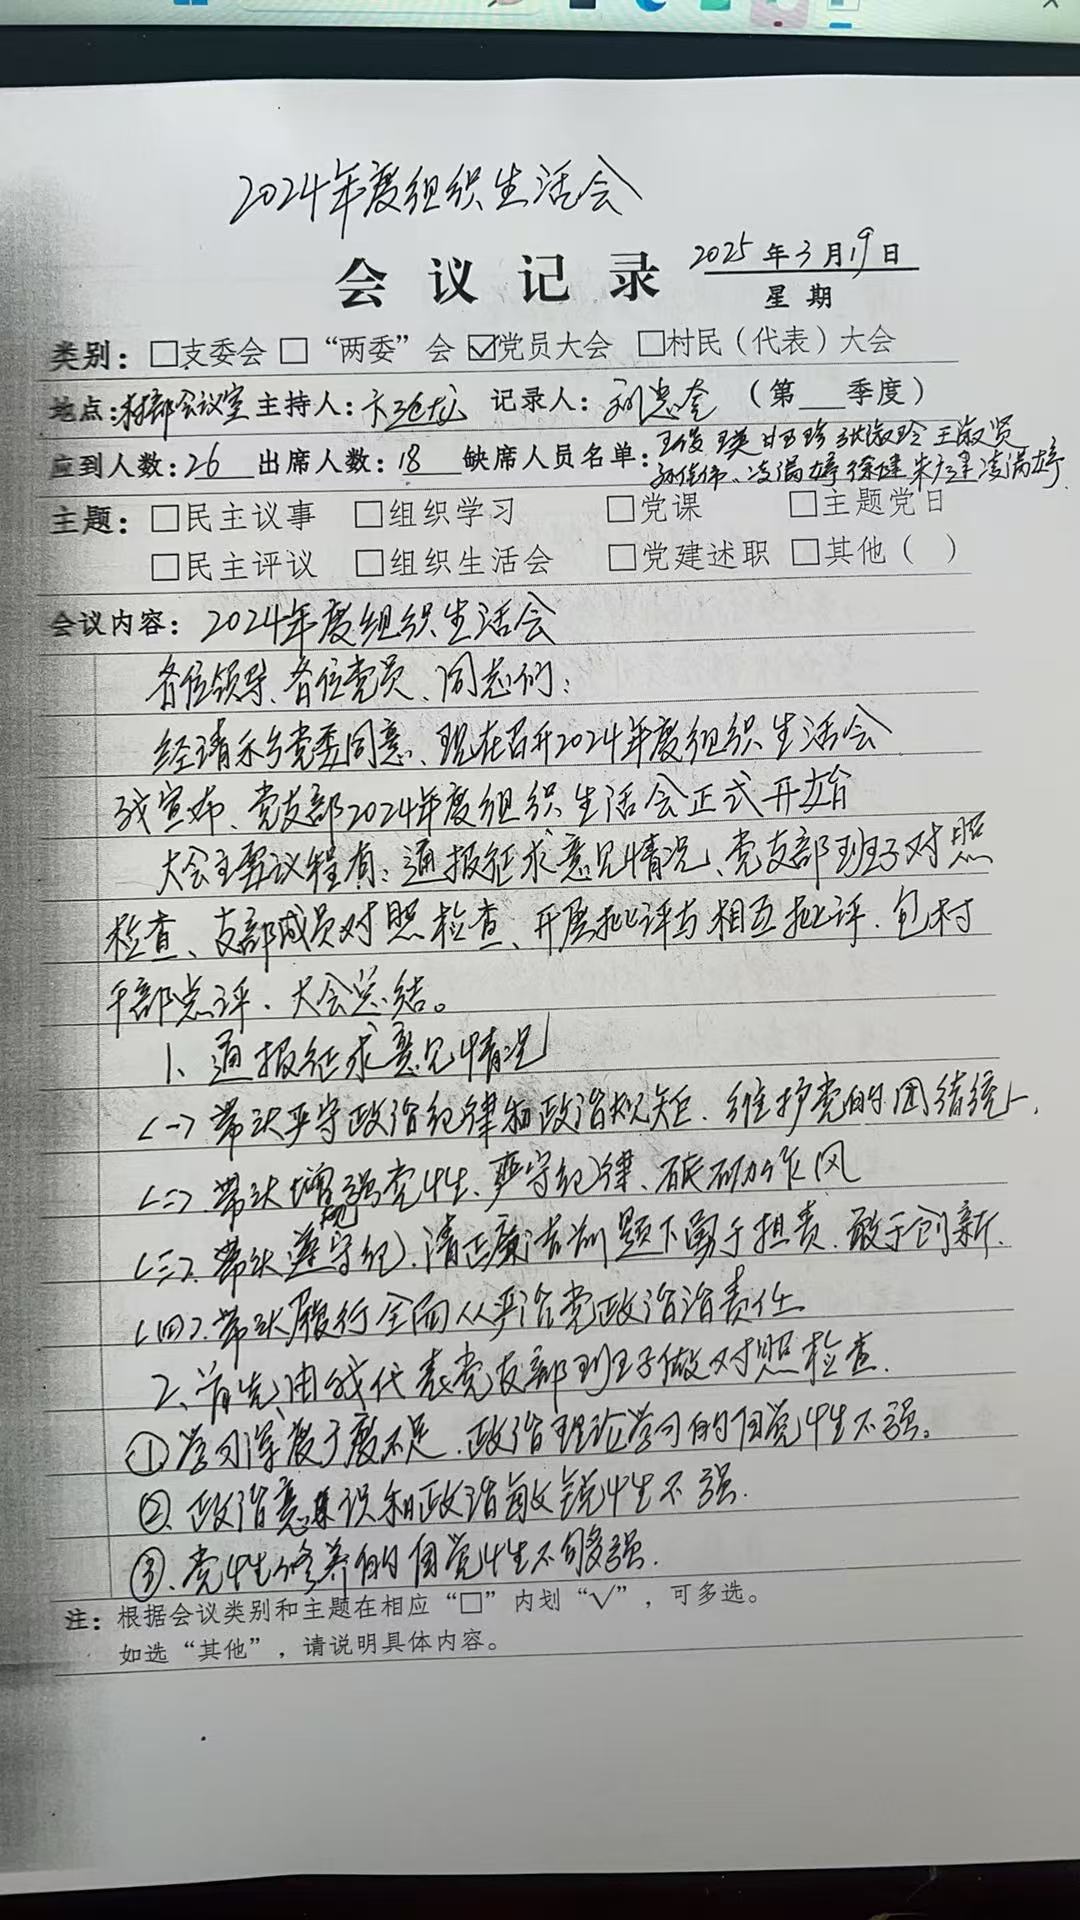 2024年度组织生活会
会议记录 2025年3月19日
星期
类别：□支委会 □“两委”会 ☑党员大会 □村民（代表）大会
地点：村部会议室 主持人： 记录人： （第__季度）
应到人数：26 出席人数：18 缺席人员名单：王俊 瑛 张淑玲 王淑贤
凌满婷 徐健 凌满婷
主题：□民主议事 □组织学习 □党课 □主题党日
□民主评议 □组织生活会 □党建述职 □其他（ ）
会议内容：2024年度组织生活会
各位领导、各位党员、同志们：
经请示乡党委同意、现在召开2024年度组织生活会
我宣布、党支部2024年度组织生活会正式开始
大会主要议程有：通报征求意见情况、党支部班子对照
检查、支部成员对照检查、开展批评与相互批评、包村
干部点评、大会总结。
1、通报征求意见情况
（一）带头严守政治纪律和政治规矩、维护党的团结统一、
（二）、带头增强党性、严守纪律、砥砺作风
（三）、带头遵规守纪、清正廉洁前题下勇于担责、敢于创新、
（四）、带头履行全面从严治党政治治责任
2、首先、由我代表党支部班子做对照检查、
①学习深度于度不足、政治理论学习的自觉性不强。
②、政治意识和政治敏锐性不强、
③、党性修养的自觉性不够强、
注：根据会议类别和主题在相应“□”内划“√”，可多选。
如选“其他”，请说明具体内容。